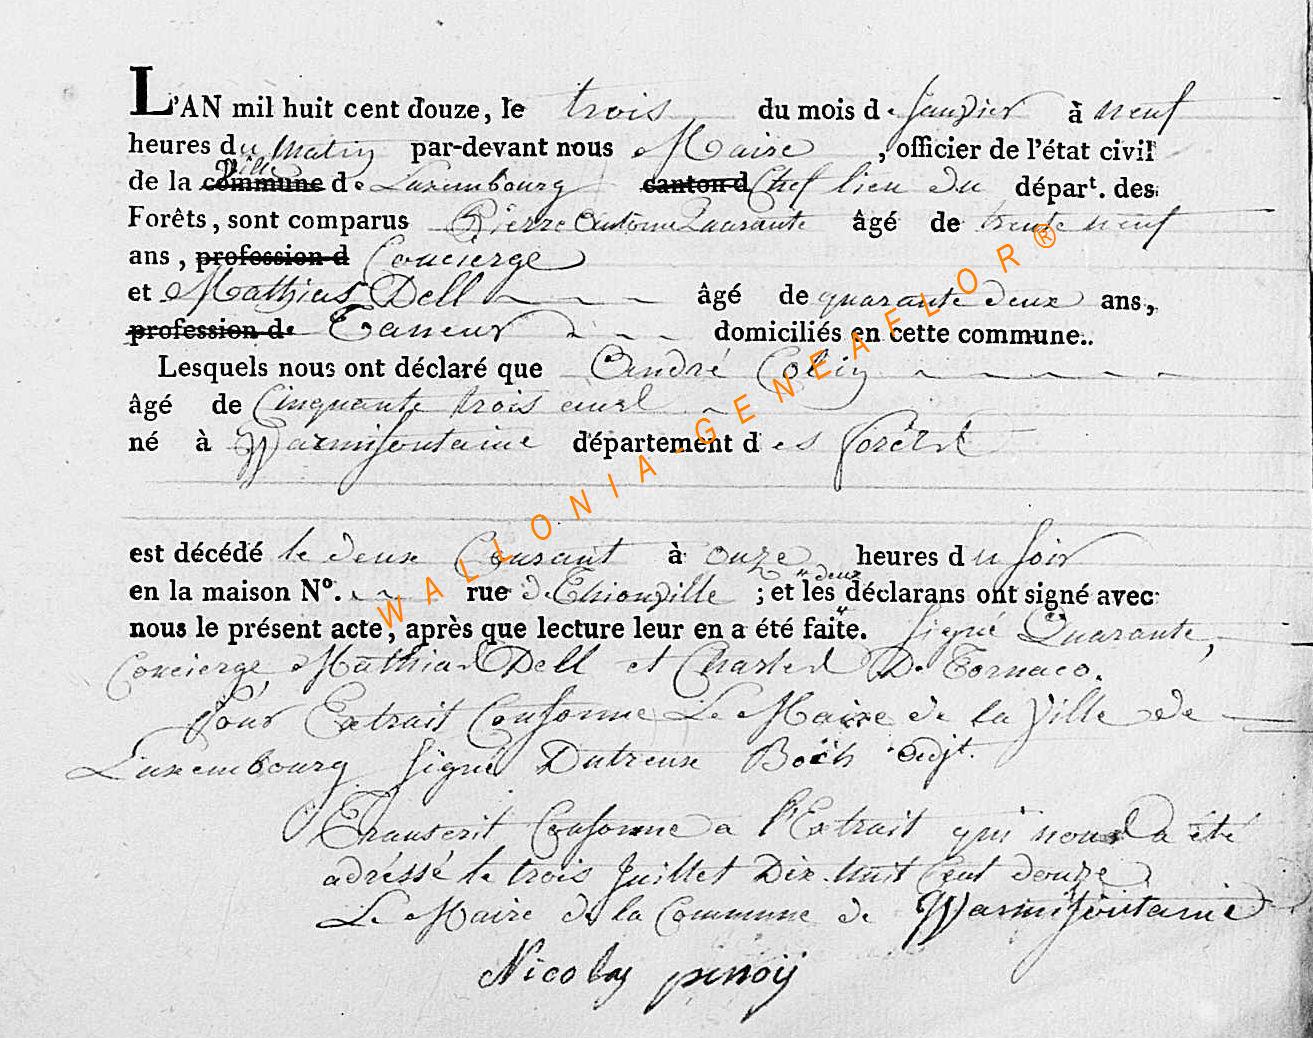 L'AN mil huit cent douze, le trois du mois de Janvier à neuf
heures du Matin par-devant nous Maire, officier de l'état civil
de la commune Ville de Luxembourg canton d Chef lieu duépart. des
Forêts, sont comparus Pierre Antoine Quarante âgé de trente neuf
ans, profession d Concierge
et Mathias Dell âgé de quarante deux ans,
profession de Tanneur domiciliés en cette commune.
Lesquels nous ont déclaré que André Colin
âgé de Cinquante trois ans
né à Warmifontaine département des forêts
est décédé le deux Courant à onze heures du soir
en la maison N°. rue de Thionville ; et les deux déclarans ont signé avec
nous le présent acte, après que lecture leur en a été faite. signé Quarante,
Concierge, Mathias Dell et Charles De Tornaco.
Pour Extrait Conforme Le Maire de la Ville de
Luxembourg signé Dutreux Boch adjt.
Transcrit Conforme a l'Extrait qui nous a été
adréssé le trois Juillet Dix huit Cent douze
Le Maire de la Commune de Warmifontaine
Nicolas pinoy
WALLONIA-GENEAFLOR®